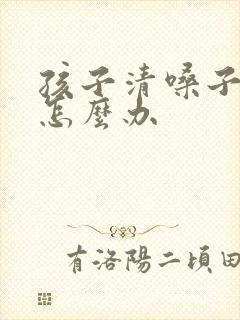 孩子清嗓子
怎麼办
有洛陽二頃田